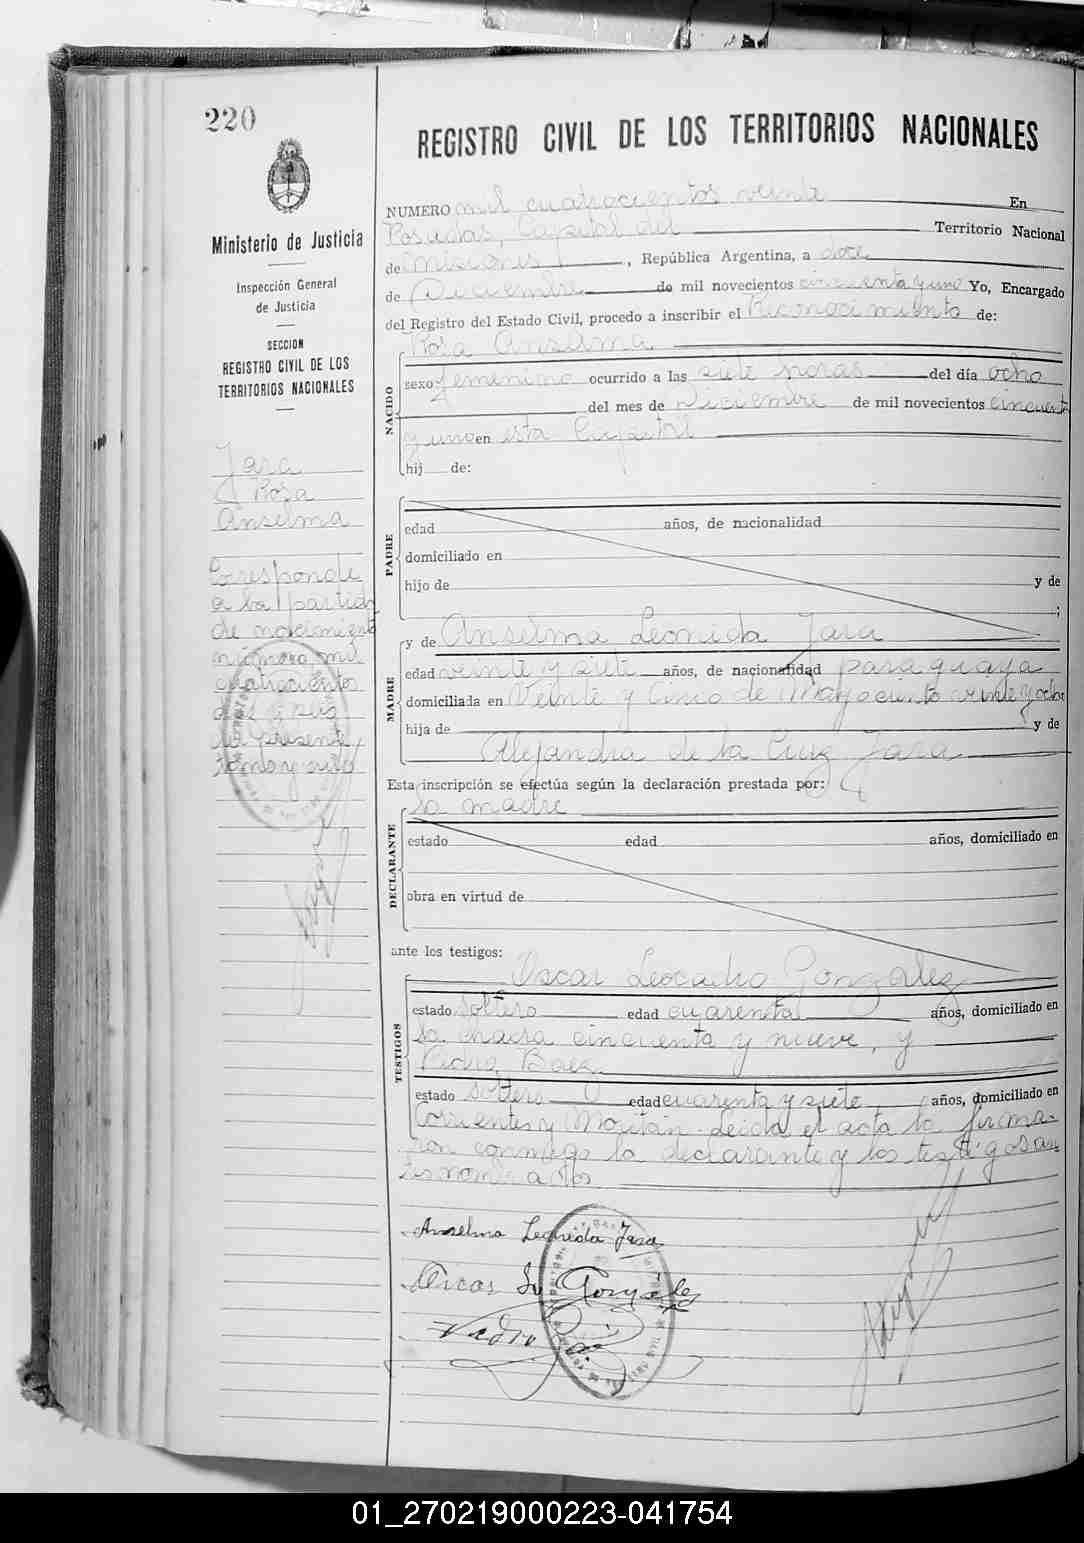 220
REGISTRO CIVIL DE LOS TERRITORIOS NACIONALES
Ministerio de Justicia
Inspección General
de Justicia
SECCION
REGISTRO CIVIL DE LOS
TERRITORIOS NACIONALES
Jara
Rosa
Anselma
Corresponde
a la partida
de nacimiento
número mil
cuatrocientos
del presente
tomo y
NUMERO mil cuatrocientos veinte En
Posadas, Capital del Territorio Nacional
de Misiones, República Argentina, a doce
de Diciembre de mil novecientos cincuenta y uno Yo, Encargado
del Registro del Estado Civil, procedo a inscribir el Reconocimiento de:
Rosa Anselma
NACIDO
sexo femenino ocurrido a las siete horas del día ocho
del mes de Diciembre de mil novecientos cincuenta
y uno en esta Capital
hij de:
PADRE
edad años, de nacionalidad
domiciliado en
hijo de y de
;
MADRE
y de Anselma Leonida Jara
edad veinte y siete años, de nacionalidad paraguaya
domiciliada en Veinte y Cinco de Mayo ciento veinte y ocho
hija de y de
Alejandra de la Cruz Jara
Esta inscripción se efectúa según la declaración prestada por:
la madre
DECLARANTE
estado edad años, domiciliado en
obra en virtud de
ante los testigos:
Oscar Leocadio González
TESTIGOS
estado soltero edad cuarenta años, domiciliado en
la chacra cincuenta y nueve, y
Pedro Baez
estado soltero edad cuarenta y siete años, domiciliado en
Corrientes y Moritán. Leida el acta la firma-
ron conmigo la declarante y los testigos an-
tes nombrados
Anselma Leonida Jara
Oscar L. Gonzalez
Pedro
01_270219000223-041754